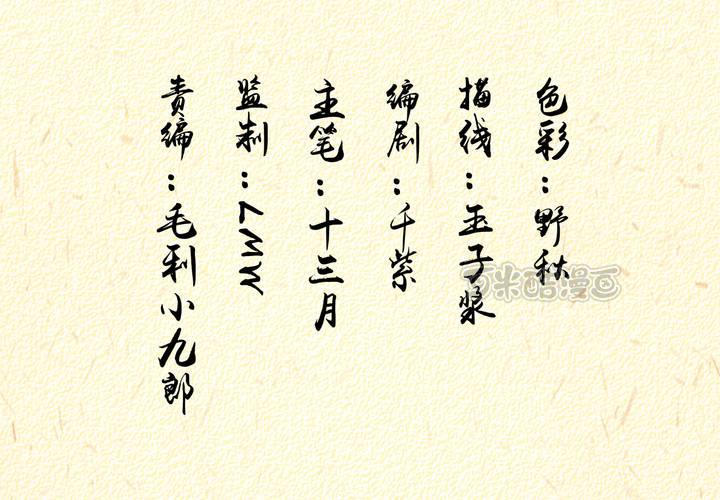 责编：毛利小九郎
监制：ZMW
主笔：十三月
编剧：千紫
描线：玉子浆
色彩：野秋
米酷漫画